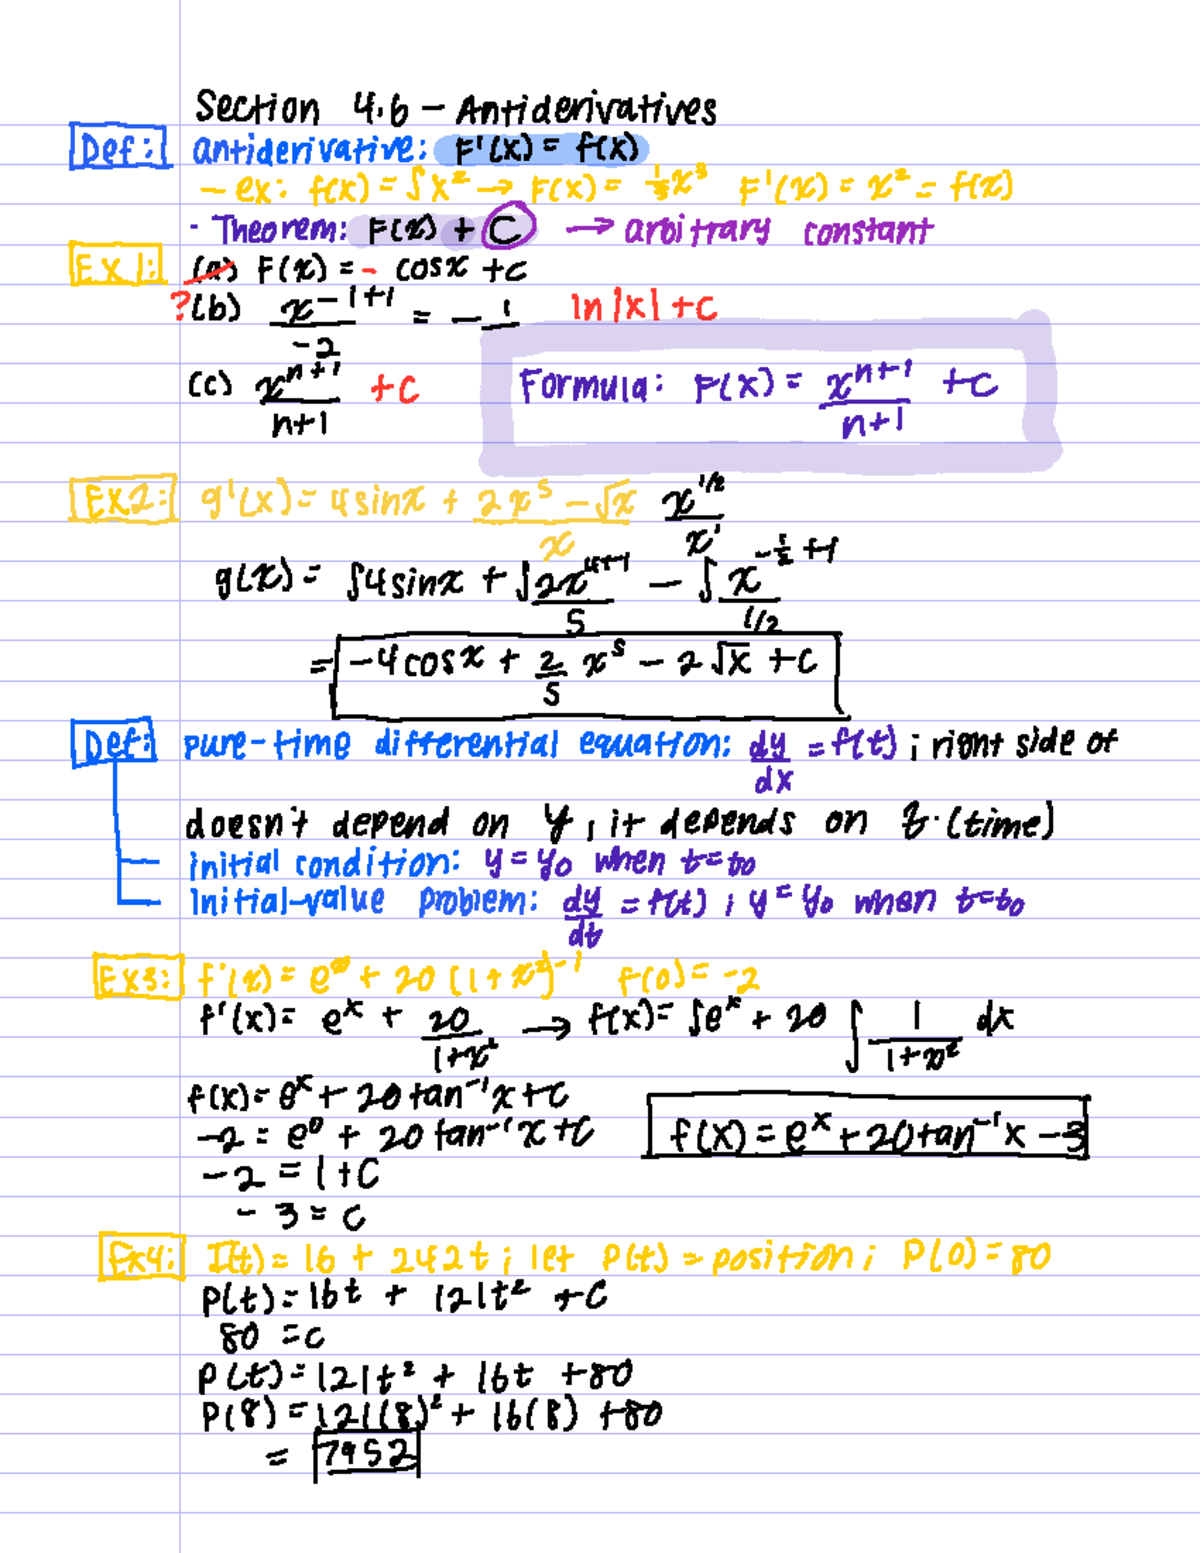 Section 4.6 - Antiderivatives
Def: antiderivative: F'(x) = f(x)
- ex: f(x) = ∫x² → F(x) = ⅓x³ F'(x) = x² = f(x)
- Theorem: F(x) + C → arbitrary constant
Ex1: (a) F(x) = - cosx + c
?(b) x^(-1+1)/-2 = - 1/ ln|x| + C
(c) x^(n+1)/(n+1) + C Formula: F(x) = x^(n+1)/(n+1) + C
Ex2: g'(x) = 4sinx + (2x⁵ - √x)/x x^(1/2)/x¹
g(x) = ∫4sinx + ∫2x^(4+1)/5 - ∫x^(-1/2+1)/(1/2)
= -4cosx + 2/5 x⁵ - 2√x + C
Def: pure-time differential equation: dy/dx = f(t) ; right side of
doesn't depend on y, it depends on t. (time)
initial condition: y = y₀ when t = t₀
Initial-value problem: dy/dt = f(t) ; y = y₀ when t = t₀
Ex3: f'(x) = eˣ + 20(1+x²)⁻¹ f(0) = -2
f'(x) = eˣ + 20/(1+x²) → f(x) = ∫eˣ + 20 ∫ 1/(1+x²) dx
f(x) = eˣ + 20tan⁻¹x + C
-2 = e⁰ + 20 tan⁻¹x + C f(x) = eˣ + 20tan⁻¹x - 3
-2 = 1 + C
-3 = C
Ex4: I(t) = 16 + 242t ; let P(t) = position ; P(0) = 80
P(t) = 16t + 121t² + C
80 = c
P(t) = 121t² + 16t + 80
P(8) = 121(8)² + 16(8) + 80
= 7952